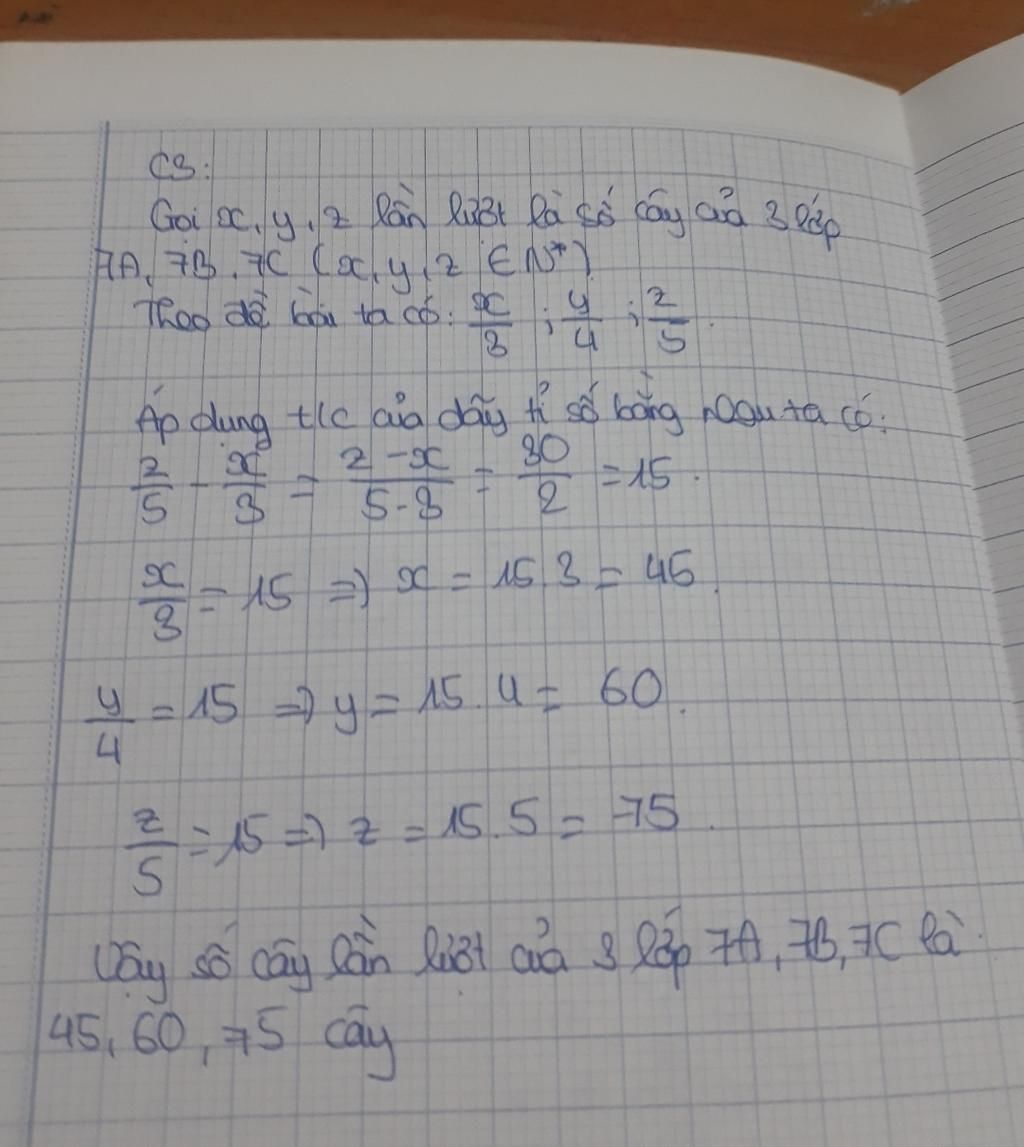 C3:
Gọi x, y, z lần lượt là số cây của 3 lớp
7A, 7B, 7C (x, y, z ∈ N*)
Theo đề bài ta có: x/3 ; y/4 ; z/5.
Áp dụng t/c của dãy tỉ số bằng nhau ta có:
z/5 - x/3 = z-x/5-3 = 30/2 = 15.
x/3 = 15 => x = 15.3 = 45.
y/4 = 15 => y = 15.4 = 60.
z/5 = 15 => z = 15.5 = 75.
Vậy số cây lần lượt của 3 lớp 7A, 7B, 7C là
45, 60, 75 cây